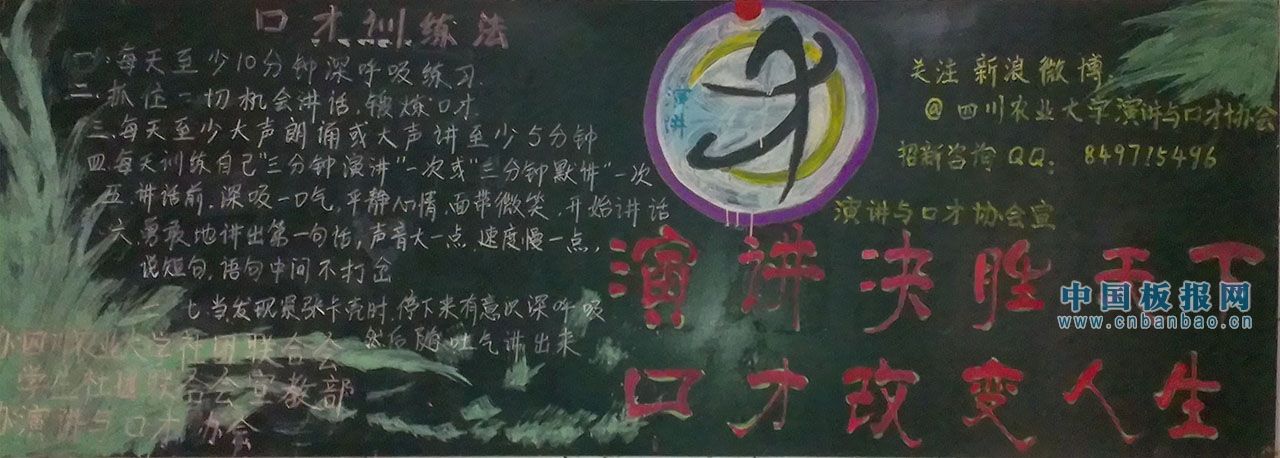 口才训练法
一.每天至少10分钟深呼吸练习.
二.抓住一切机会讲话,锻炼口才
三.每天至少大声朗诵或大声讲至少5分钟
四.每天训练自己"三分钟演讲"一次或"三分钟默讲"一次
五.讲话前,深吸一口气,平静心情,面带微笑,开始讲话
六.勇敢地讲出第一句话,声音大一点,速度慢一点,
说短句,语句中间不打岔
七.当发现紧张卡壳时,停下来有意识深呼吸
然后随吐气讲出来
办四川农业大学社团联合会
学生社团联合会宣教部
办演讲与口才协会
演讲
才
关注 新浪微博
@四川农业大学演讲与口才协会
招新咨询QQ: 849715496
演讲与口才协会宣
演讲决胜天下
口才改变人生
中国板报网
www.cnbanbao.cn